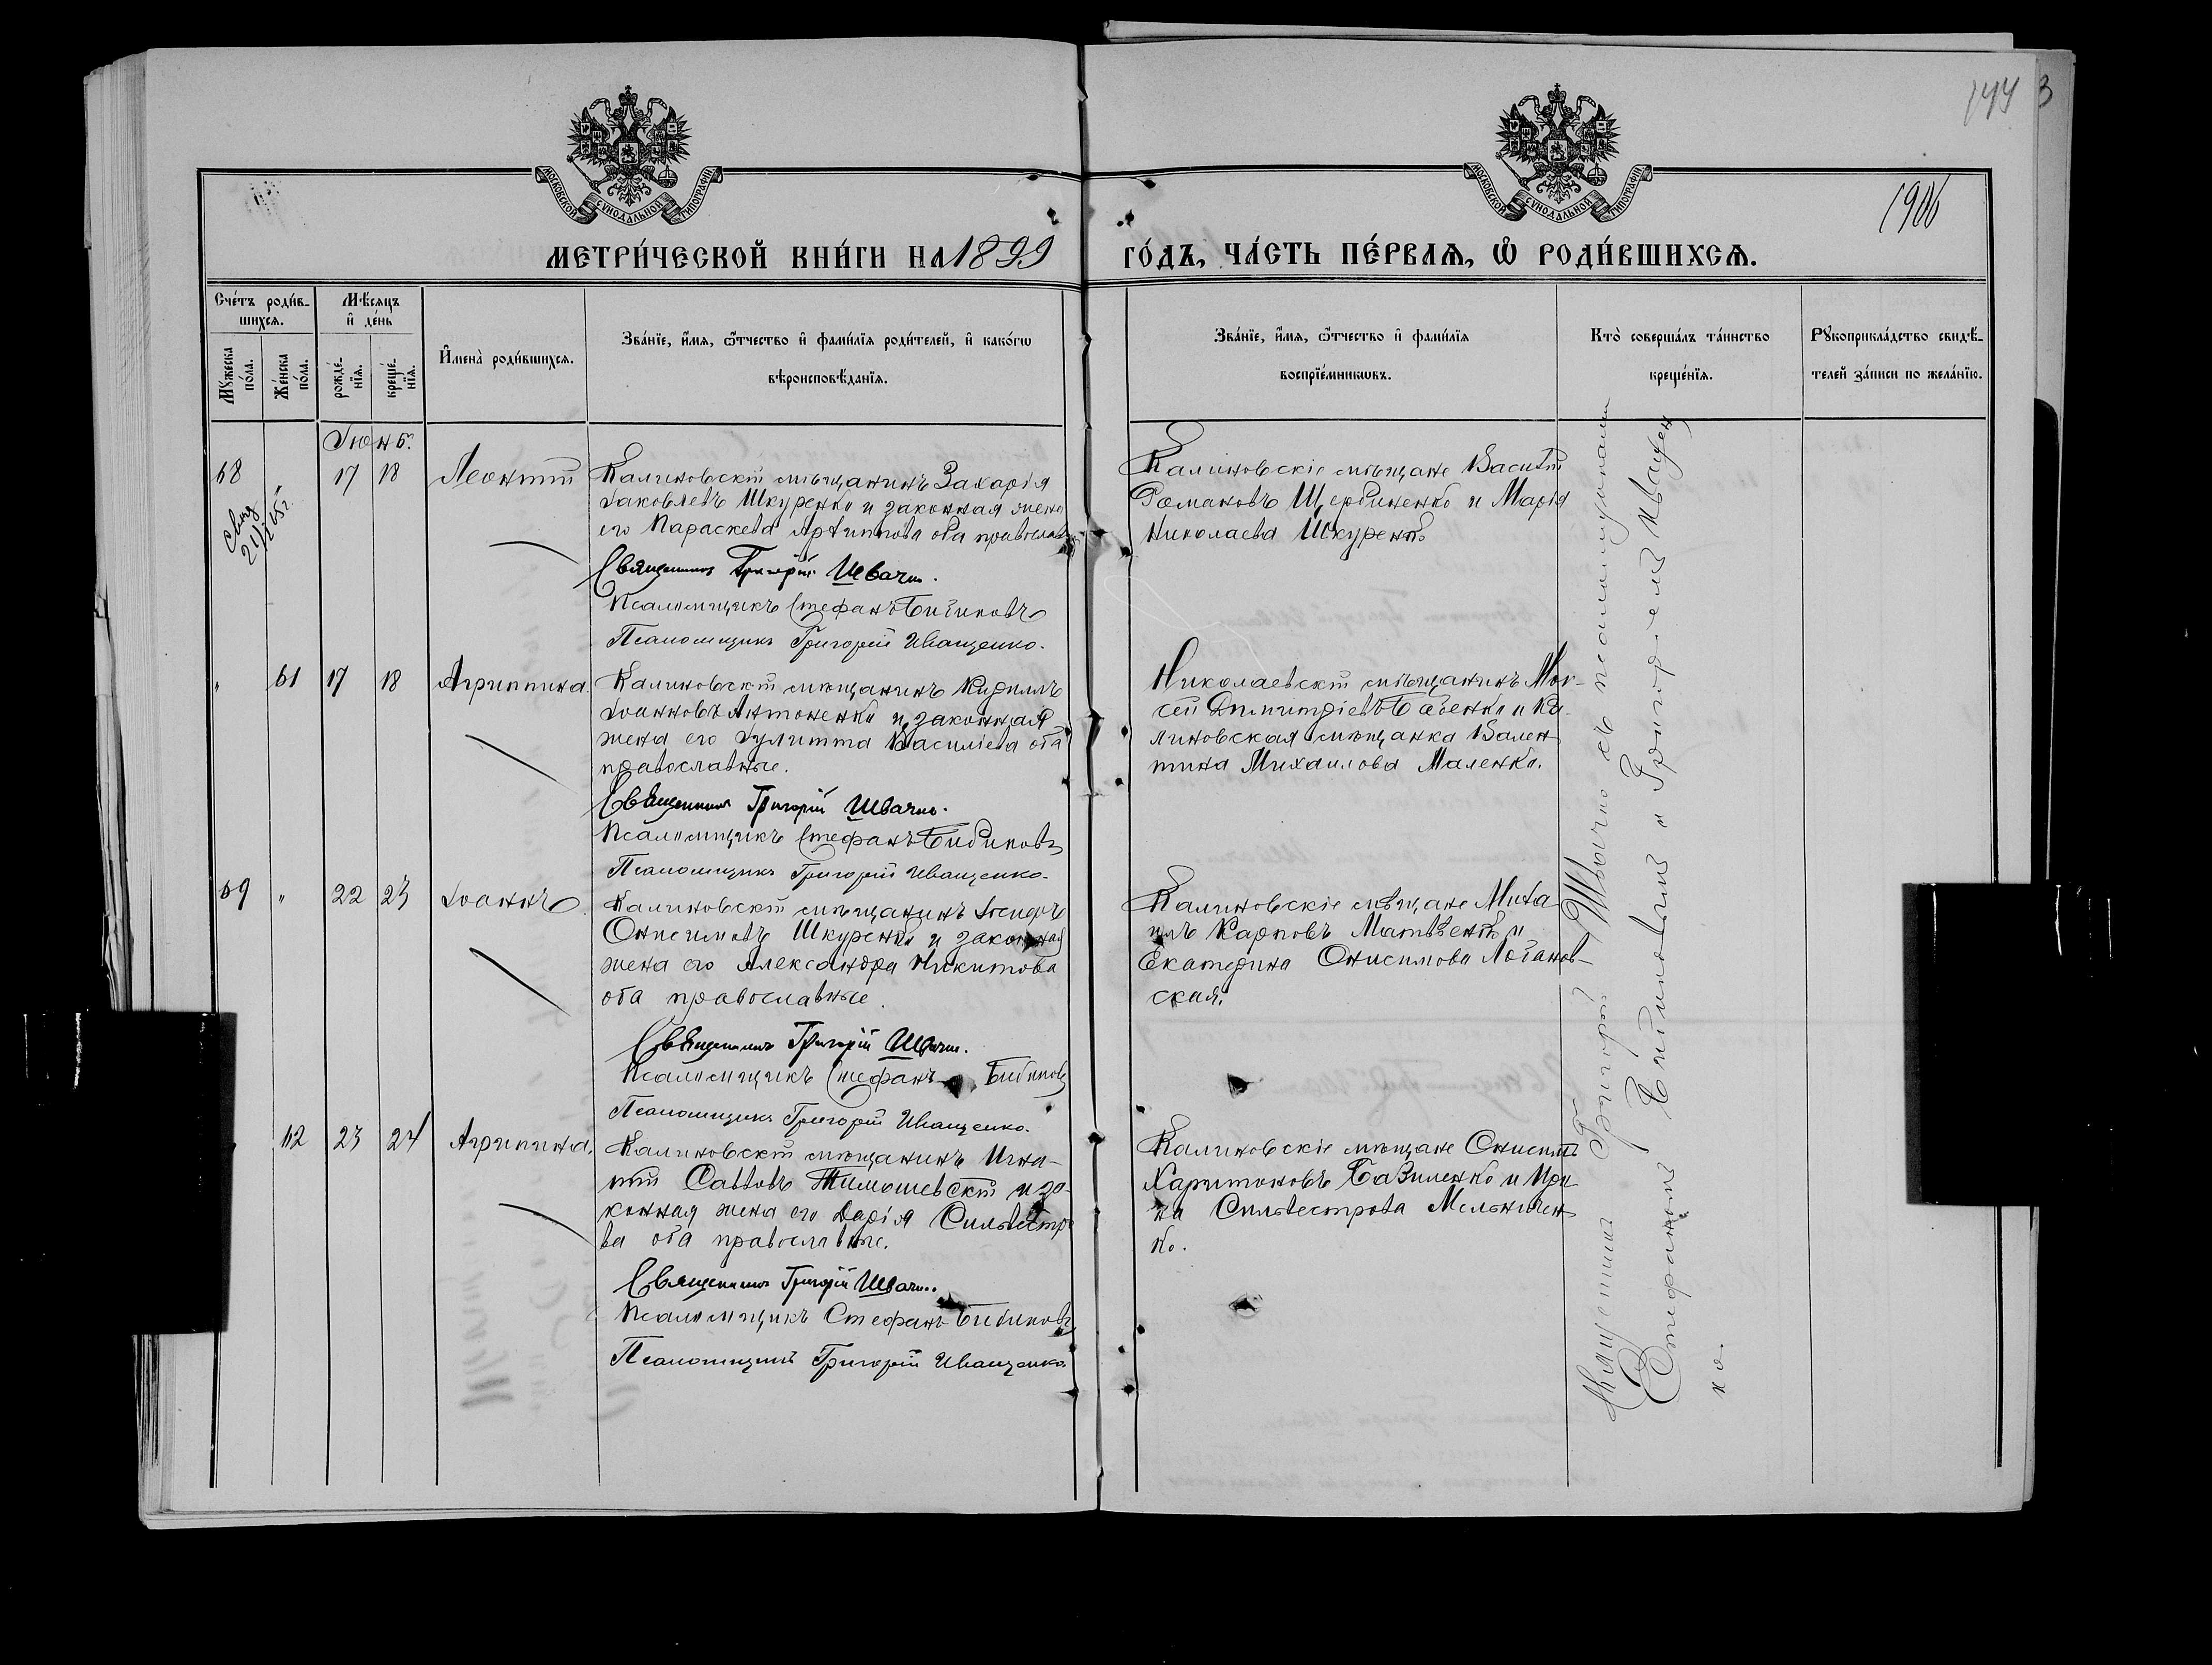 144 3
1906
МОСКОВСКОЙ СѴНОДАЛЬНОЙ ТИПОГРАФІИ
МОСКОВСКОЙ СѴНОДАЛЬНОЙ ТИПОГРАФІИ
МЕТРИ́ЧЕСКОЙ КНИ́ГИ НА 1899 ГО́ДЪ, ЧА́СТЬ ПЕ́РВАѦ, Ѽ РОДИ́ВШИХСѦ.
Сче́тъ роди́в-
шихсѧ.
Мꙋжеска по́ла.
Же́нска по́ла.
Мѣ́сѧцъ и҆ де́нь
рожде́-нїѧ.
креще́-нїѧ.
И҆мена̀ роди́вшихсѧ.
Зва́нїе, и҆́мѧ, ѻ҆́тчество и҆ фами́лїѧ роди́телей, и҆ како́гѡ
вѣроисповѣ́данїѧ.
Зва́нїе, и҆́мѧ, ѻ҆́тчество и҆ фами́лїѧ
воспрїе́мникѡвъ.
Кто̀ соверша́лъ та́инство
креще́нїѧ.
Рꙋкоприкла́дство свидѣ́-
телей за́писи по жела́нїю.
Іюнь.
68 " 17 18 Леонтій
Калиновскій мѣщанинъ Захарія
Іаковлевъ Шкуренко и законная жена
его Параскева Архиппова оба православ
Священникъ Григорій Швачко.
Псаломщикъ Стефанъ Бибиковъ
Псаломщикъ Григорій Иващенко.
Калиновскіе мѣщане Василій
Романовъ Щербиненко и Марія
Николаева Шкуренко
" 61 17 18 Агриппина.
Калиновскій мѣщанинъ Кириллъ
Іоанновъ Антоненко и законная
жена его Іулитта Василіева оба
православные.
Священникъ Григорій Швачко.
Псаломщикъ Стефанъ Бибиковъ
Псаломщикъ Григорій Иващенко.
Николаевскій мѣщанинъ Мои-
сей Димитріевъ Бабенко и Ка-
линовская мѣщанка Вален
тина Михаилова Маленко.
69 " 22 23 Іоаннъ
Калиновскій мѣщанинъ Іосифъ
Онисимовъ Шкуренко и законная
жена его Александра Никитова
оба православные.
Священникъ Григорій Швачко.
Псаломщикъ Стефанъ Бибиковъ
Псаломщикъ Григорій Иващенко.
Калиновскіе мѣщане Миха
илъ Карповъ Матвѣенко и
Екатерина Онисимова Лобанов-
ская.
62 23 24 Агриппина.
Калиновскій мѣщанинъ Игна-
тій Савовъ Тимошевскій и за-
конная жена его Дарія Сильвестро
ва оба православные.
Священникъ Григорій Швачко.
Псаломщикъ Стефанъ Бибиковъ
Псаломщикъ Григорій Иващенко.
Калиновскіе мѣщане Онисимъ
Харитоновъ Базиленко и Ири
на Сильвестрова Мельничен
ко.
Священникъ Григорій Швачко съ псаломщиками
Стефаномъ Бибиковымъ и Григоріемъ Иващен
ко.